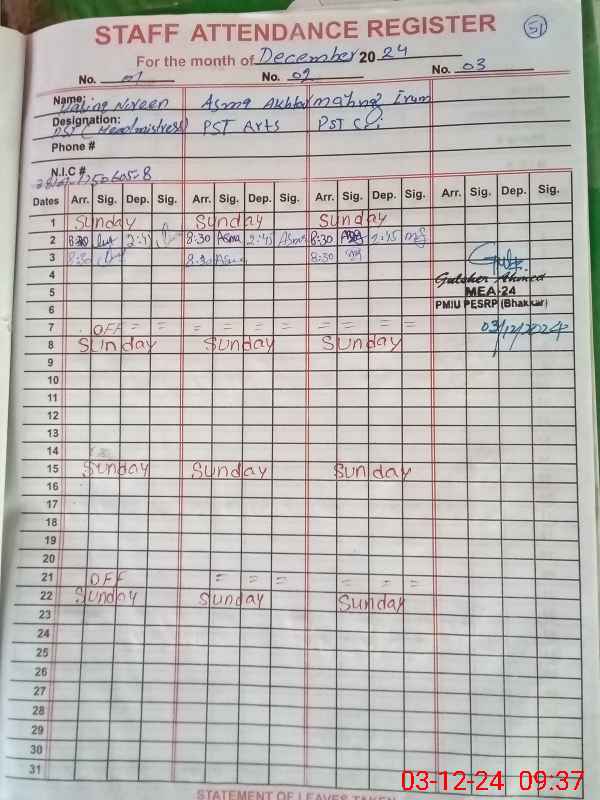 51
STAFF ATTENDANCE REGISTER
For the month of December 2024
No. 01 No. 02 No. 03
Name: Noreen Asma Akhtar Irum
Designation: PST (Headmistress) PST Arts PST Sci
Phone #
N.I.C #
Dates Arr. Sig. Dep. Sig. Arr. Sig. Dep. Sig. Arr. Sig. Dep. Sig. Arr. Sig. Dep. Sig.
1 Sunday Sunday Sunday
2 8:30 2:45 8:30 Asma 2:45 Asma 8:30 2:45
3 8:30 8:30 Asma 8:30
4
Gulsher Ahmed
5
MEA-24
6
PMIU PESRP (Bhakkar)
7 OFF = = = = = = = = =
03/12/2024
8 Sunday Sunday Sunday
9
10
11
12
13
14
15 Sunday Sunday Sunday
16
17
18
19
20
21 OFF = = = = = =
22 Sunday Sunday Sunday
23
24
25
26
27
28
29
30
31
03-12-24 09:37
STATEMENT OF LEAVES TAKEN